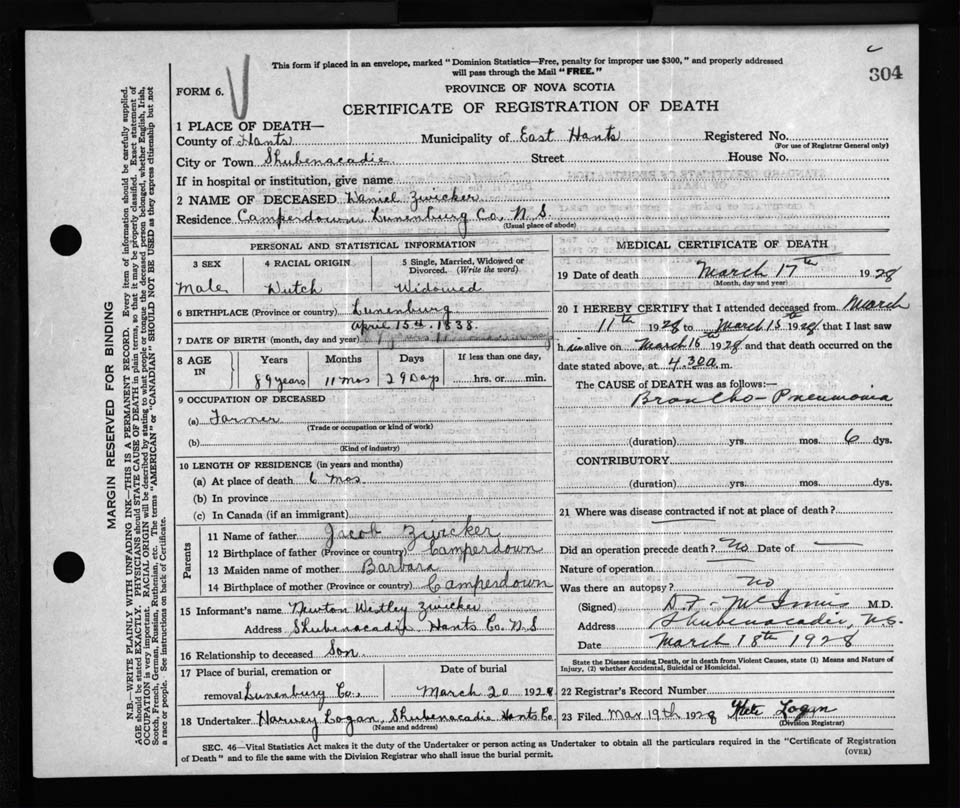 304
This form if placed in an envelope, marked "Dominion Statistics—Free, penalty for improper use $300," and properly addressed
will pass through the Mail "FREE."
FORM 6.
PROVINCE OF NOVA SCOTIA
CERTIFICATE OF REGISTRATION OF DEATH
1 PLACE OF DEATH—
County of Hants Municipality of East Hants Registered No.
(For use of Registrar General only)
City or Town Shubenacadie Street House No.
If in hospital or institution, give name
2 NAME OF DECEASED Daniel Zwicker
Residence Camperdown Lunenburg Co, N S
(Usual place of abode)
PERSONAL AND STATISTICAL INFORMATION
3 SEX 4 RACIAL ORIGIN 5 Single, Married, Widowed or Divorced. (Write the word)
Male Dutch Widowed
6 BIRTHPLACE (Province or country) Lunenburg
April 15th. 1838.
7 DATE OF BIRTH (month, day and year)
8 AGE IN Years Months Days If less than one day,
89 years 11 mos 29 Days hrs. or min.
9 OCCUPATION OF DECEASED
(a) Farmer
(Trade or occupation or kind of work)
(b)
(Kind of industry)
10 LENGTH OF RESIDENCE (in years and months)
(a) At place of death 6 mos
(b) In province
(c) In Canada (if an immigrant)
Parents
11 Name of father Jacob Zwicker
12 Birthplace of father (Province or country) Camperdown
13 Maiden name of mother Barbara
14 Birthplace of mother (Province or country) Camperdown
15 Informant's name Newton Westley Zwicker
Address Shubenacadie Hants Co. N S
16 Relationship to deceased Son
17 Place of burial, cremation or Date of burial
removal Lunenburg Co., March 20 1928
18 Undertaker Harvey Logan, Shubenacadie Hants Co
(Name and address)
MEDICAL CERTIFICATE OF DEATH
19 Date of death March 17th 1928
(Month, day and year)
20 I HEREBY CERTIFY that I attended deceased from March
11th 1928 to March 15th 1928 that I last saw
him alive on March 16th 1928 and that death occurred on the
date stated above, at 4.30 a. m.
The CAUSE of DEATH was as follows:—
Broncho-Pneumonia
(duration) yrs. mos. 6 dys.
CONTRIBUTORY
(duration) yrs. mos. dys.
21 Where was disease contracted if not at place of death?
Did an operation precede death? No Date of —
Nature of operation
Was there an autopsy? no
(Signed) D. F. McInnis M.D.
Address Shubenacadie, N.S.
Date March 18th 1928
State the Disease causing Death, or in death from Violent Causes, state (1) Means and Nature of
Injury, (2) whether Accidental, Suicidal or Homicidal.
22 Registrar's Record Number
23 Filed Mar 19th 1928 Logan
(Division Registrar)
SEC. 46—Vital Statistics Act makes it the duty of the Undertaker or person acting as Undertaker to obtain all the particulars required in the "Certificate of Registration
of Death" and to file the same with the Division Registrar who shall issue the burial permit.
(OVER)
MARGIN RESERVED FOR BINDING
N.B.—WRITE PLAINLY WITH UNFADING INK—THIS IS A PERMANENT RECORD. Every item of information should be carefully supplied.
AGE should be stated EXACTLY. PHYSICIANS should STATE CAUSE OF DEATH in plain terms, so that it may be properly classified. Exact statement of
OCCUPATION is very important. RACIAL ORIGIN will be described by stating to what people or tongue the deceased person belonged, whether English, Irish,
Scotch, French, German, Russian, Ruthenian, etc. The terms "AMERICAN" or "CANADIAN" SHOULD NOT BE USED as they express citizenship but not
a race or people. See instructions on back of Certificate.